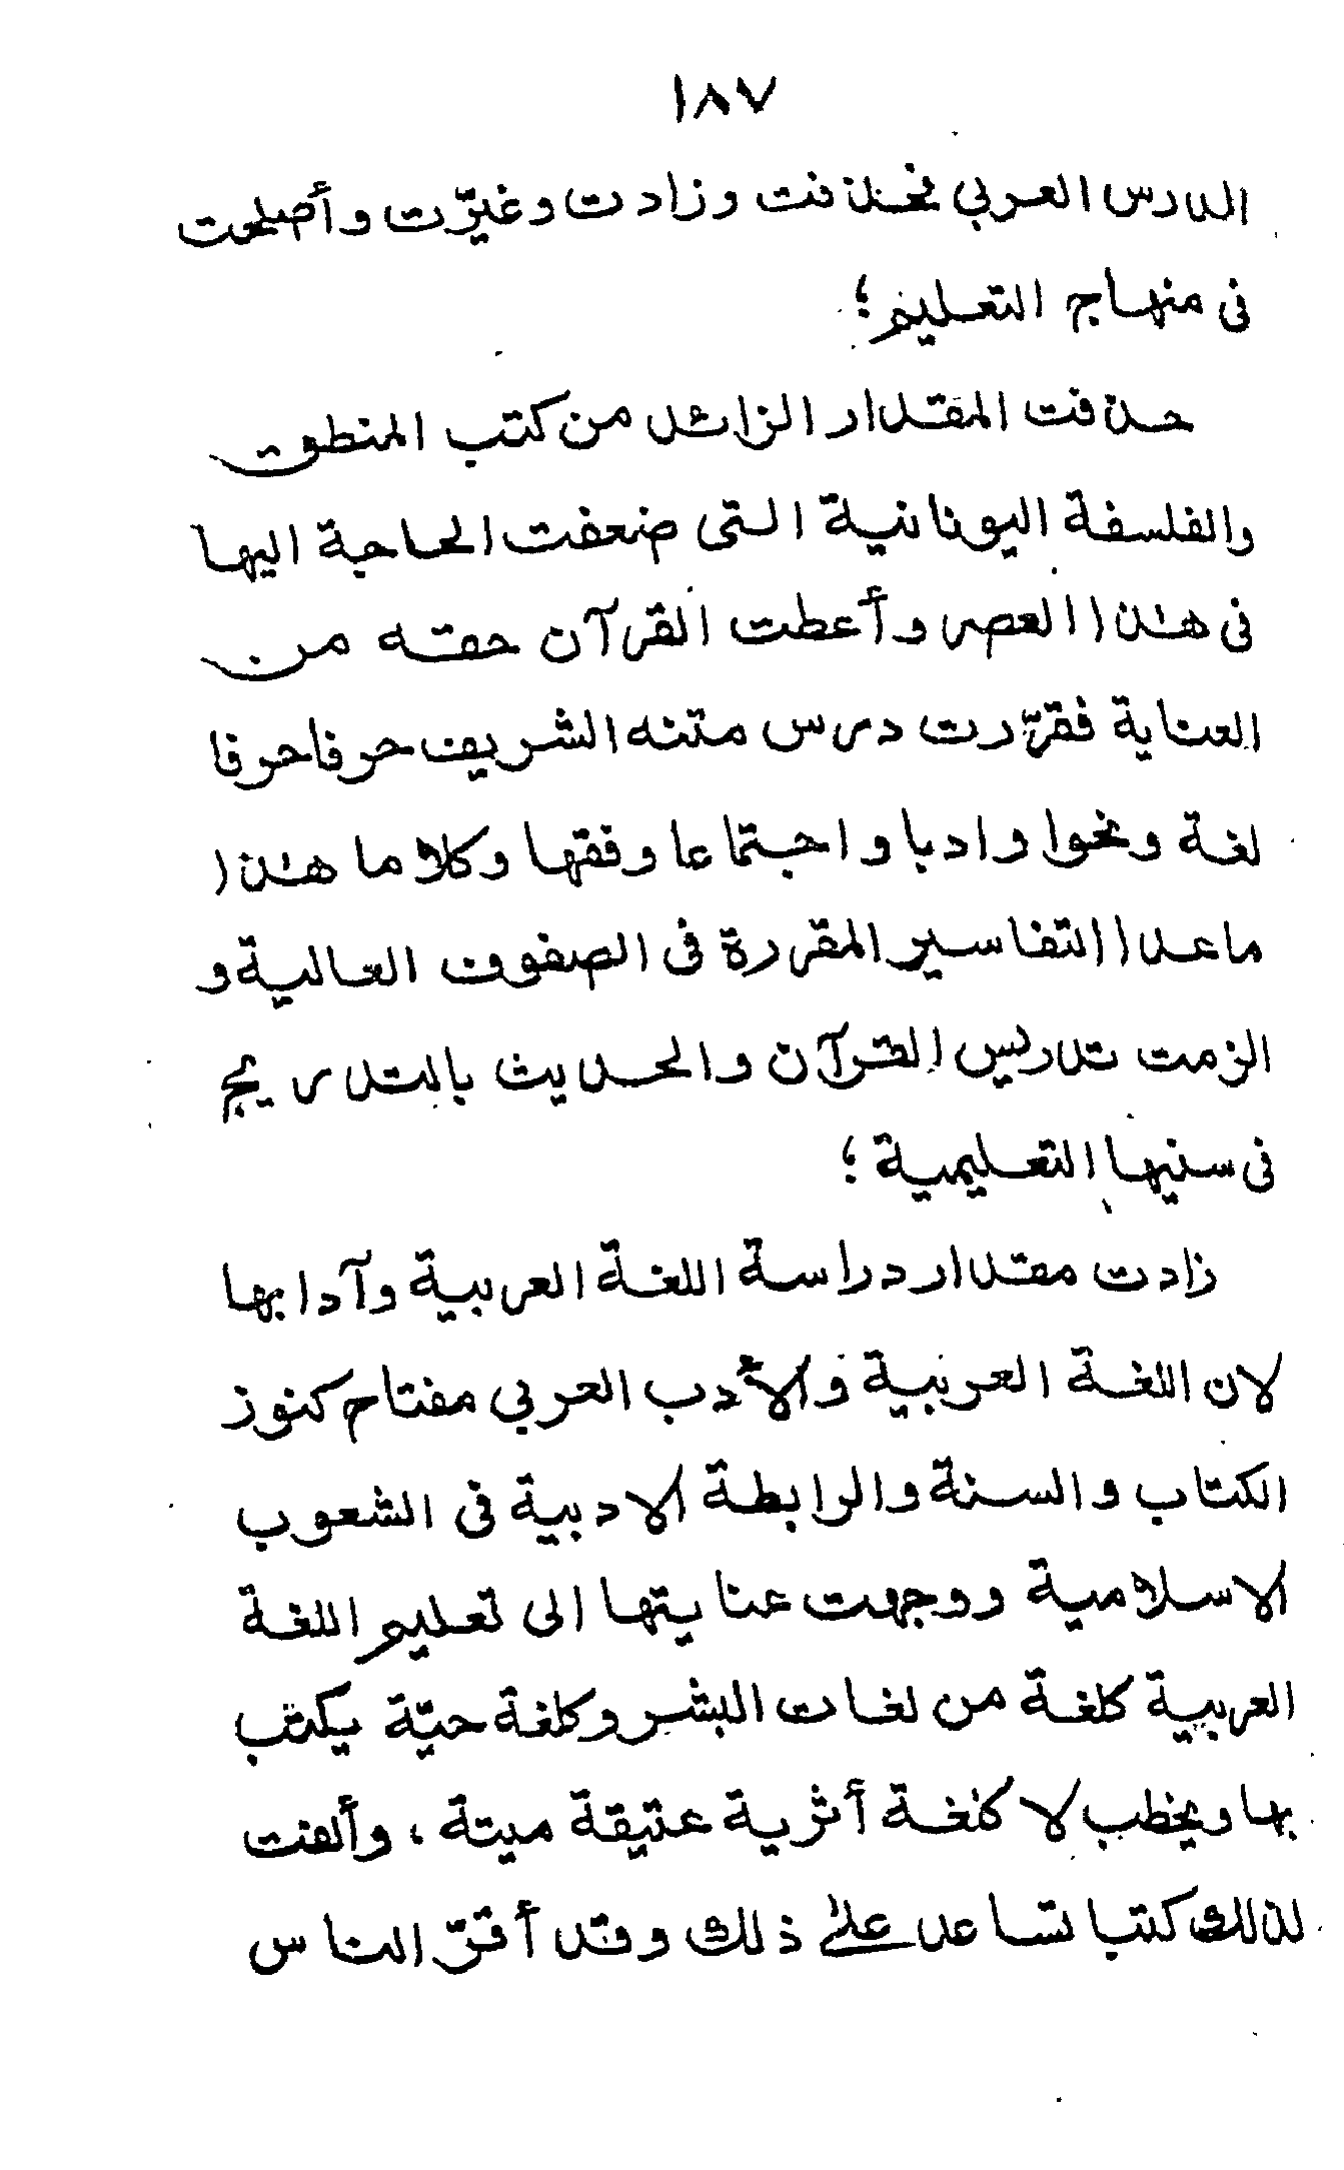 ١٨٧
الدرس العربي فحذفت وزادت وغيّرت وأصلحت
فى منهاج التعليم؛
حذفت المقدار الزائد من كتب المنطق
والفلسفة اليونانية التى ضعفت الحاجة اليها
فى هذا العصر وأعطت القرآن حقه من
العناية فقرّرت درس متنه الشريف حرفا حرفا
لغة ونحوا وادبا واجتماعا وفقها وكلاما هذا
ماعدا التفاسير المقررة فى الصفوف العالية و
الزمت تدريس القرآن والحديث بالتدريج
فى سنيها التعليمية؛
زادت مقدار دراسة اللغة العربية وآدابها
لان اللغة العربية والأدب العربي مفتاح كنوز
الكتاب والسنة والرابطة الادبية فى الشعوب
الاسلامية ووجهت عنايتها الى تعليم اللغة
العربية كلغة من لغات البشر وكلغة حيّة يكتب
بها ويخطب لا كلغة أثرية عتيقة ميتة، وألفت
لذلك كتبا تساعد على ذلك وقد أقرّ الناس